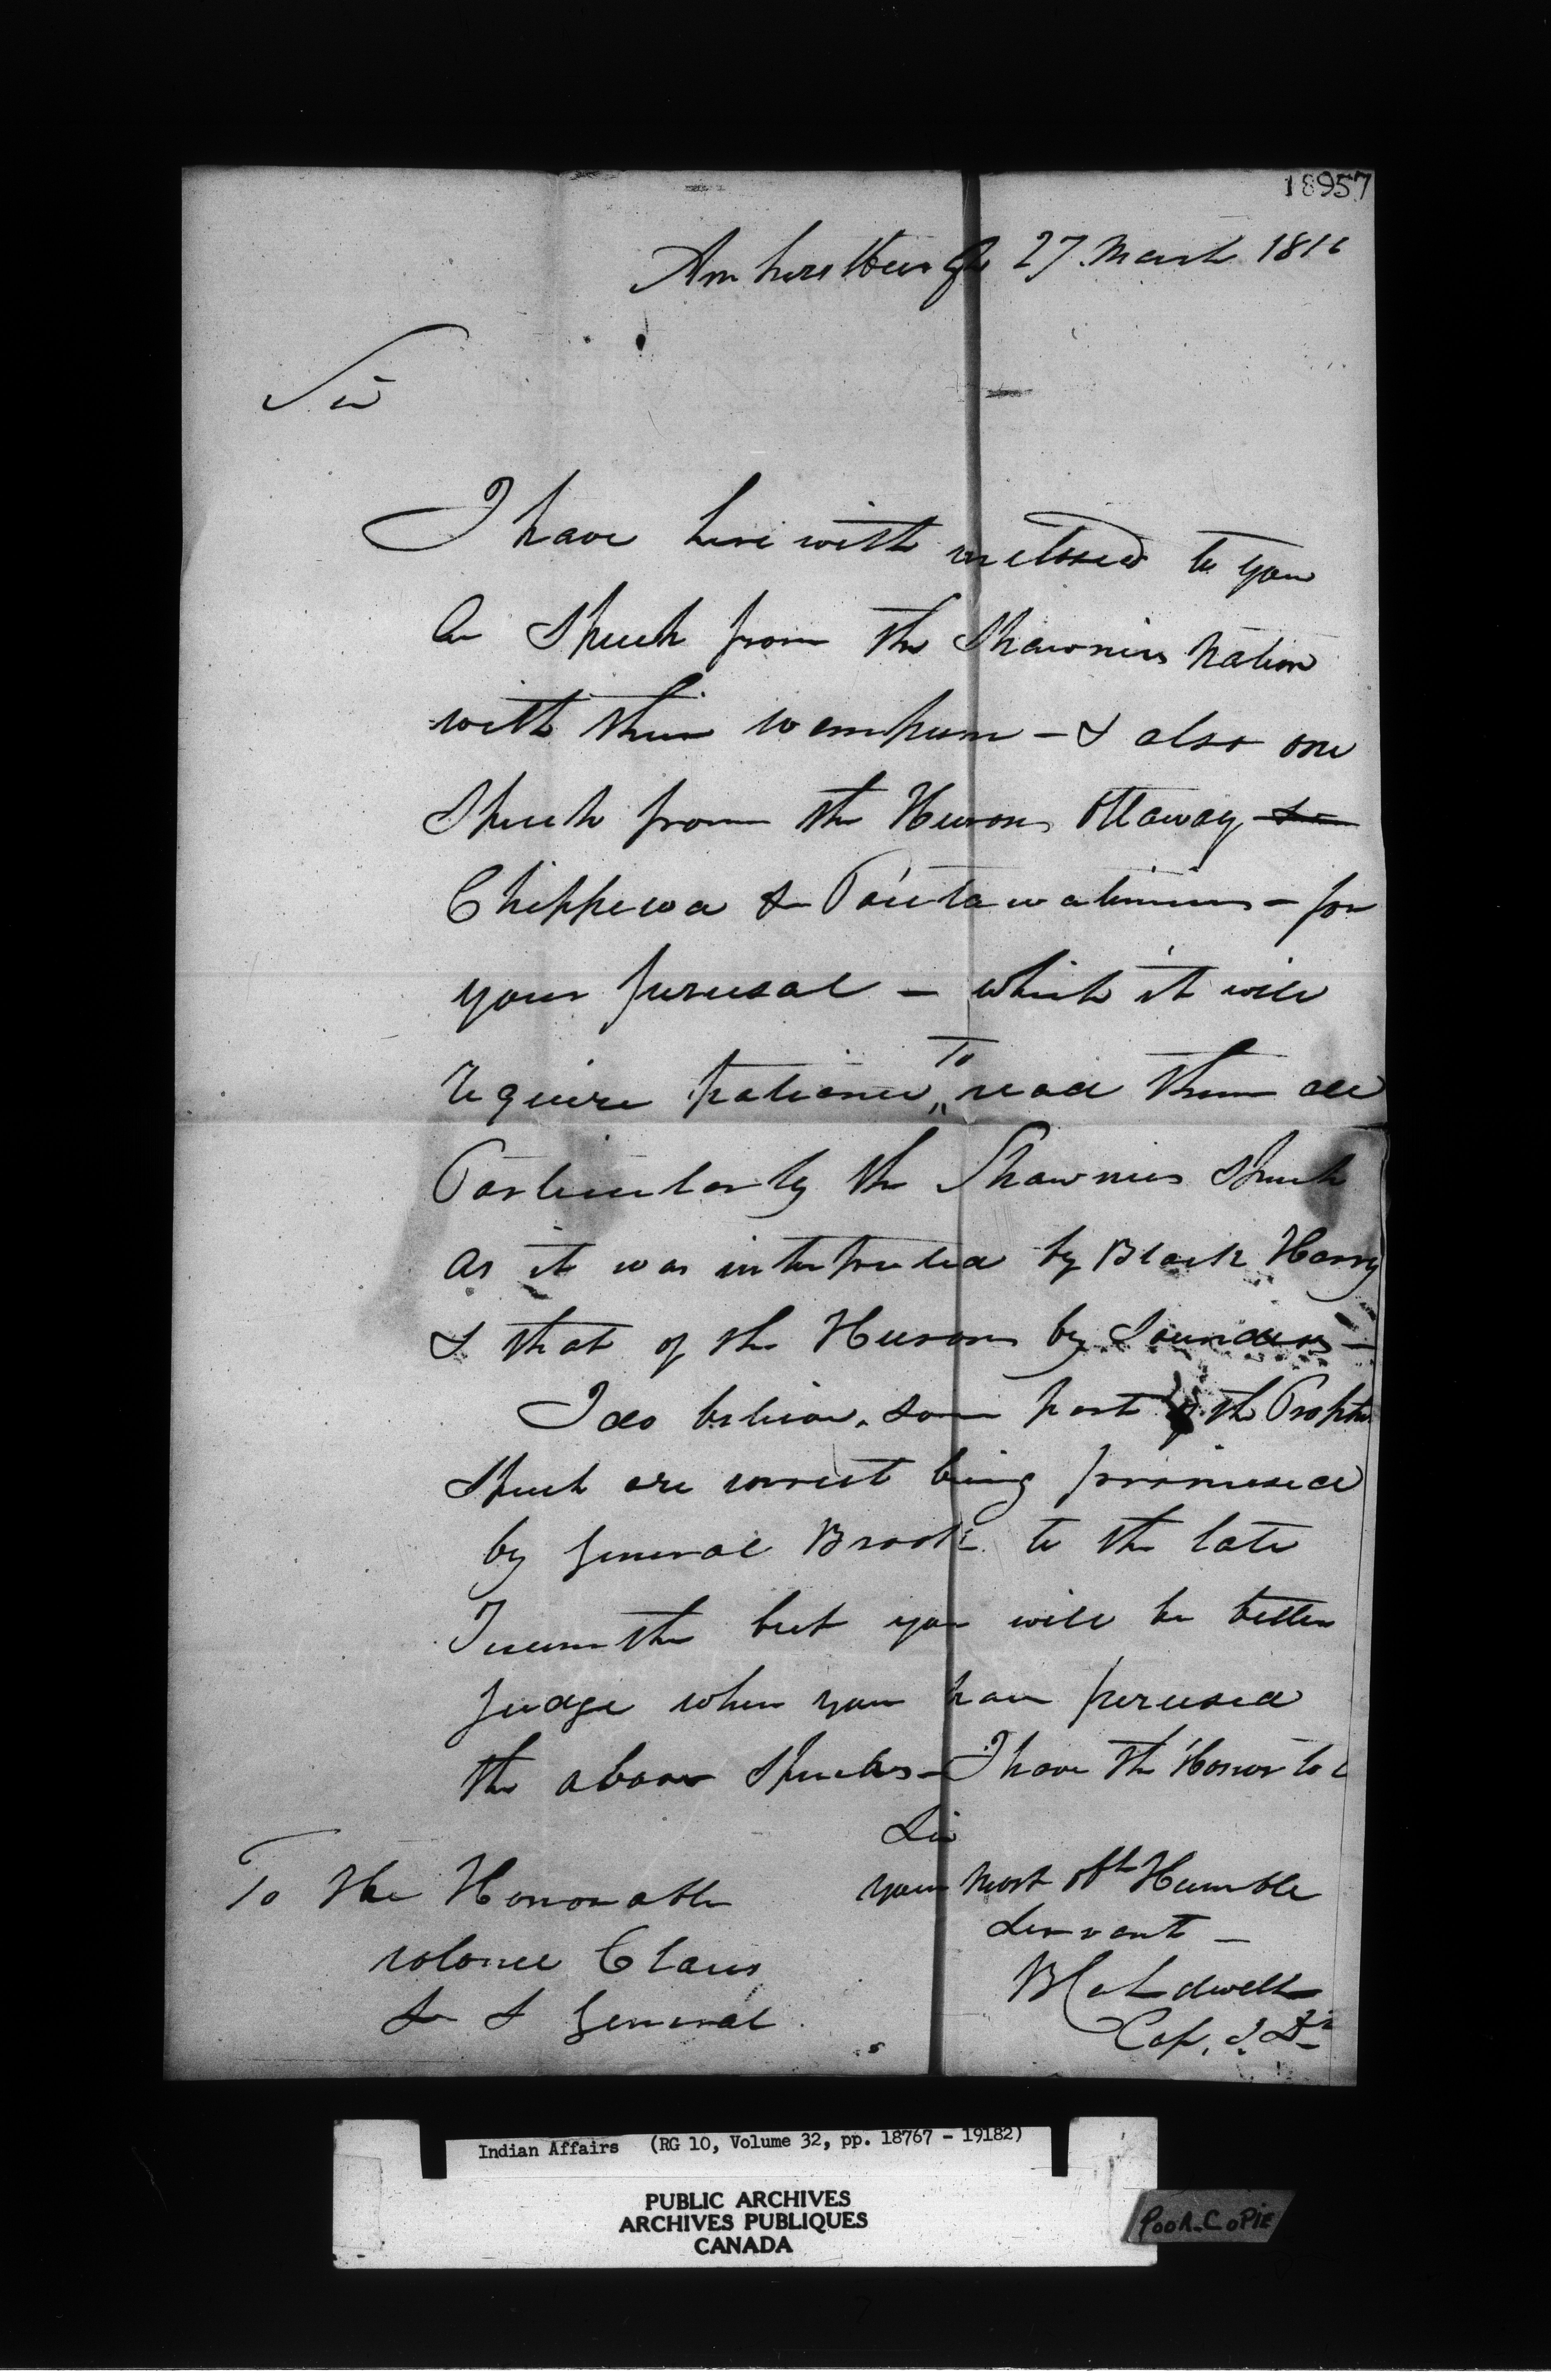 18957
Amherstburgh 27 March 1816
Sir
I have herewith inclosed to you
a Speech from the Shawnies Nation
with their wampum - & also one
Speech from the Hurons Ottaway
Chippewa & Poutawatimies - for
your perusal - which it will
require patience to read them all
Particularly the Shawnies Speech
as it was interpreted by Black Harry
& that of the Hurons by Saunders -
I do believe some part of the Prophts
Speech are correct being promised
by General Brock to the late
Tecumthe but you will be better
Judge when you have perused
the above Speeches - I have the Honor to be
Sir
your most obt Humble
Servant -
B Caldwell
Cap. I. Dt
To the Honorable
Colonel Claus
General
Indian Affairs (RG 10, Volume 32, pp. 18767 - 19182)
PUBLIC ARCHIVES
ARCHIVES PUBLIQUES
CANADA
POOR COPIE